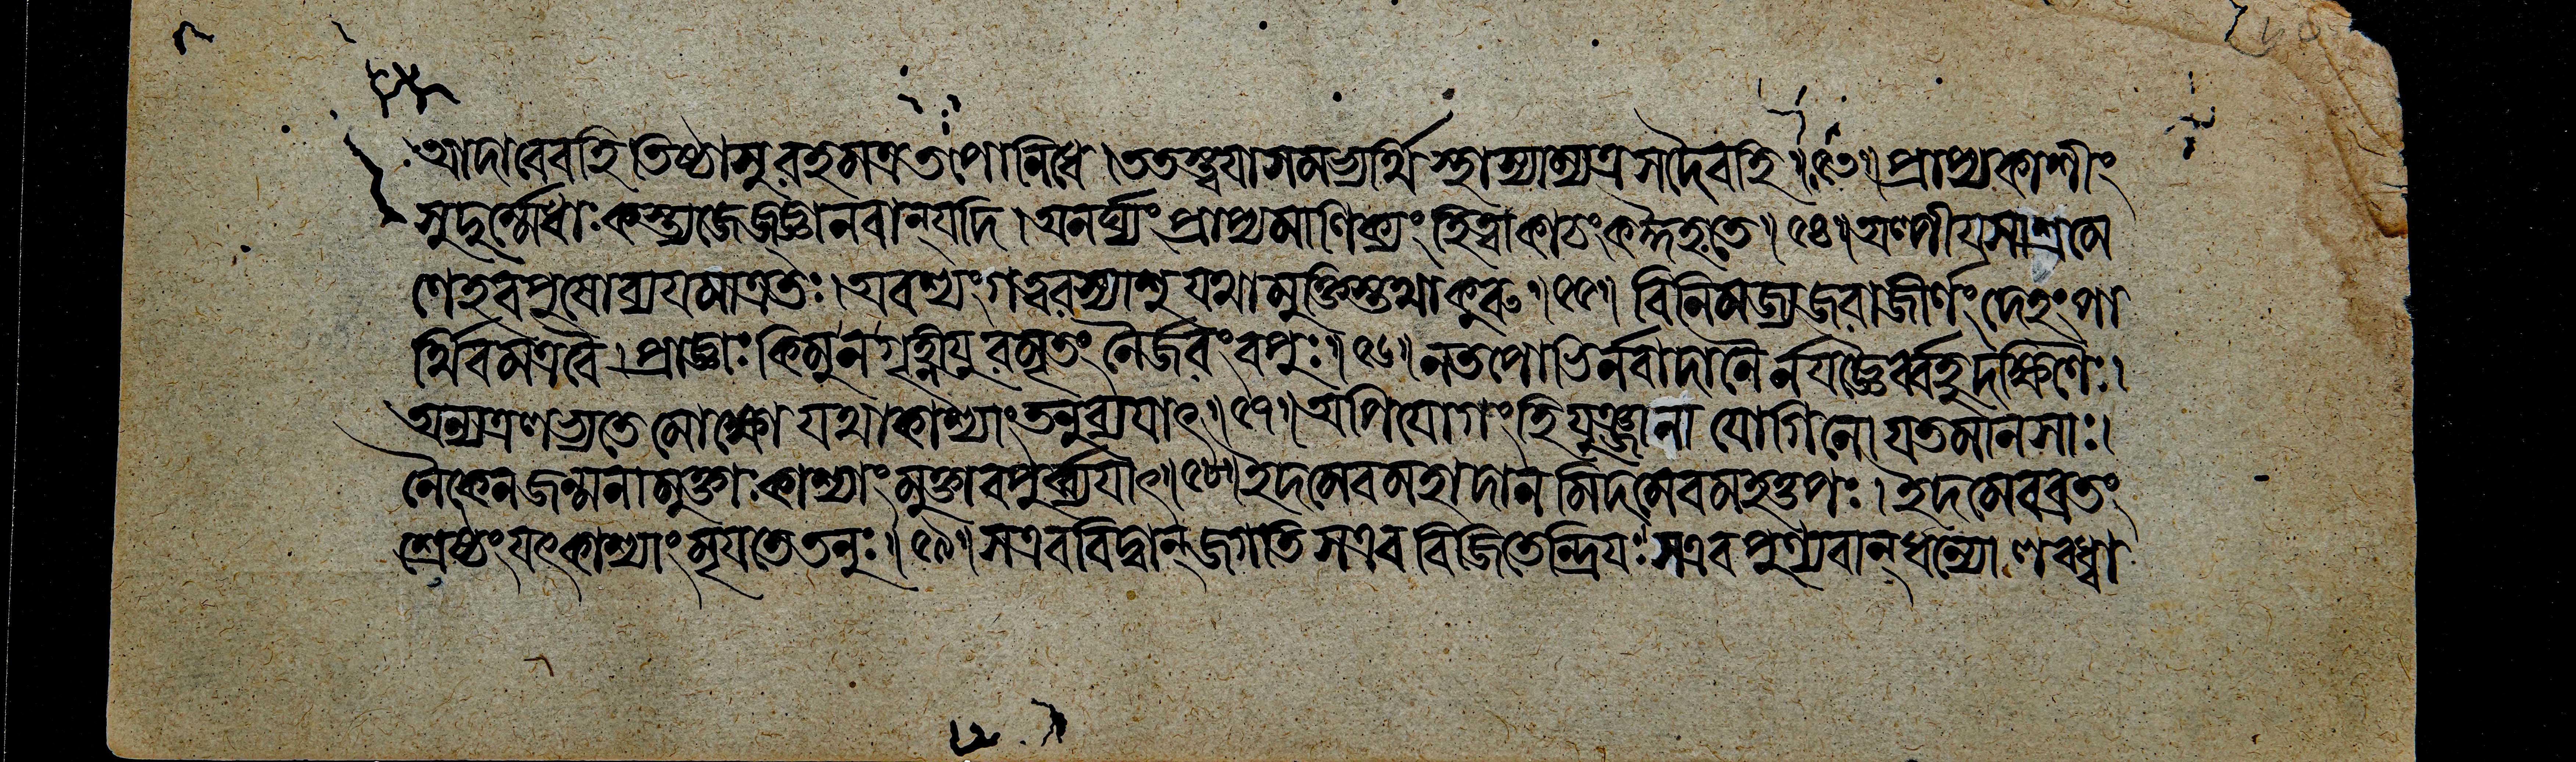 আদাবেব হি তিষ্ঠাসুরহমত্র তপোনিধে । ততস্ত্বযা সমভ্যর্থি স্থাস্যাম্যত্র সদৈব হি ॥ ৫৩ ॥ প্রাপ্য কাশীং
সুদুর্ম্মেধাঃ কস্ত্যজেজ্জ্ঞানবান্ যদি । অনর্ঘ্যং প্রাপ্য মাণিক্যং হিত্বা কাচং ক ঈহতে ॥ ৫৪ ॥ অল্পীযসা শ্রমে
ণেহ বপুষো ব্যযমাত্রতঃ । অবশ্যং গত্বরস্যাশু যথা মুক্তিস্তথা কুরু ॥ ৫৫ ॥ বিনিমজ্য জরাজীর্ণং দেহং পা
র্থিবমত্র বৈ । প্রাজ্ঞাঃ কিমু ন গৃহ্ণীযুরমৃতং নৈর্জরং বপুঃ ॥ ৫৬ ॥ ন তপোভির্ন বা দানৈর্ন যজ্ঞৈর্ব্বহুদক্ষিণৈঃ ।
অন্যত্র লভ্যতে মোক্ষো যথা কাশ্যাং তনুব্যযাৎ ॥ ৫৭ ॥ অপি যোগং হি যুঞ্জানা যোগিনো যতমানসাঃ ।
নৈকেন জন্মনা মুক্তাঃ কাশ্যাং মুক্তা বপুর্ব্ব্যযাৎ ॥ ৫৮ ॥ ইদমেব মহাদানমিদমেব মহত্তপঃ । ইদমেব ব্রতং
শ্রেষ্ঠং যৎ কাশ্যাং মৃযতে তনুঃ ॥ ৫৯ ॥ স এব বিদ্বান্ জগতি স এব বিজিতেন্দ্রিযঃ স এব পুণ্যবান্ ধন্যো লব্ধ্বা